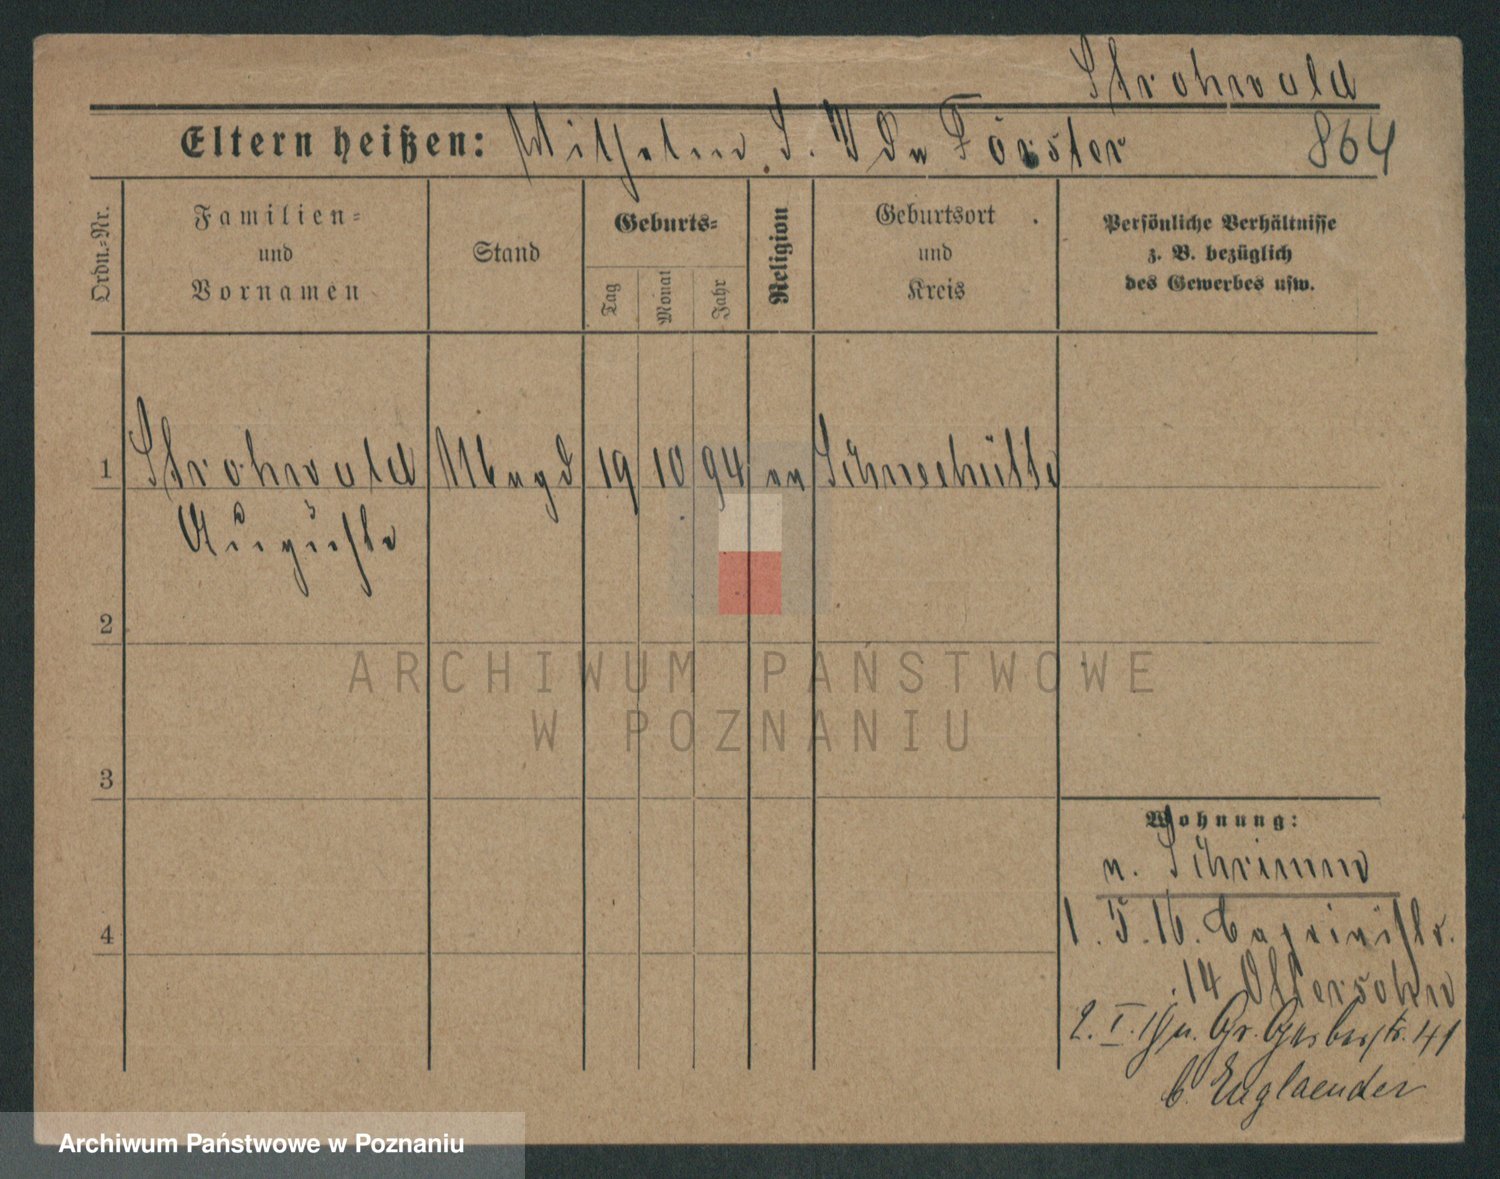 Strohwald
Eltern heißen: Wilhelm S. Förster
864
Ordn.=Nr.
Familien=
und
Vornamen
Stand
Geburts=
Tag
Monat
Jahr
Religion
Geburtsort
und
Kreis
Persönliche Verhältnisse
z. B. bezüglich
des Gewerbes usw.
1 Strohwald Magd 19 10 94 ev Schneehütte
Auguste
2
3
4
Wohnung:
n. Schrimm
1. 5. 16. Caprivistr.
14 Ollersohn
2. I. 19 n. Gr. Gerberstr. 41
b. Englaender
ARCHIWUM PAŃSTWOWE
W POZNANIU
Archiwum Państwowe w Poznaniu